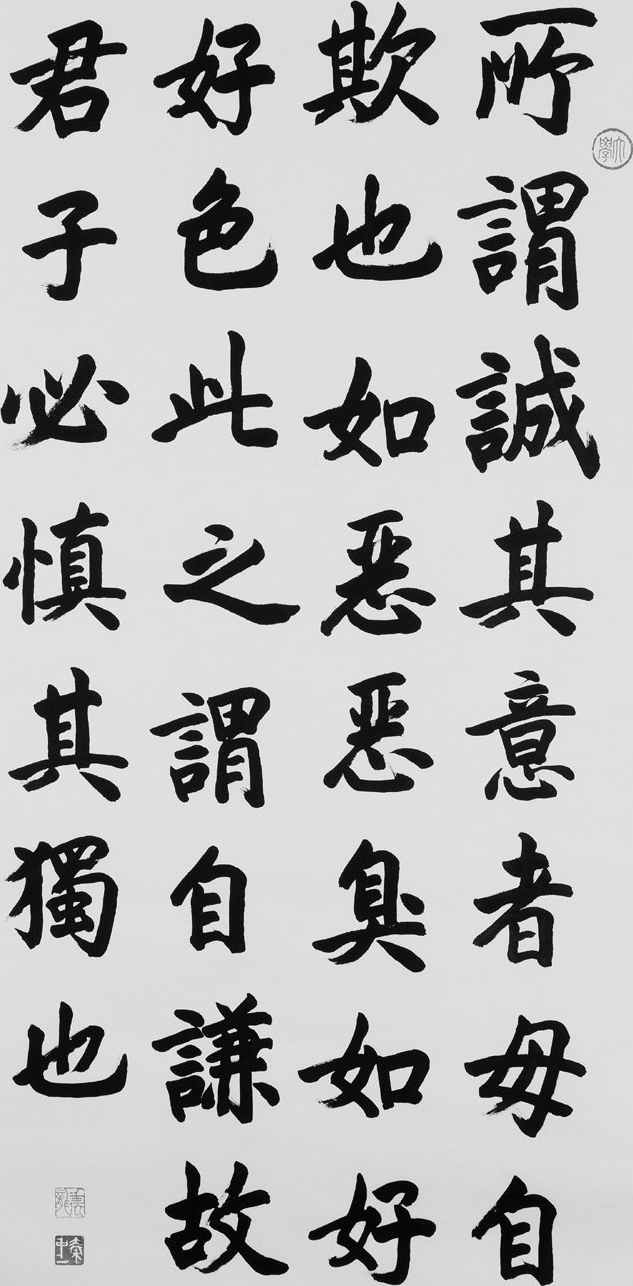 所謂誠其意者毋自
欺也如惡惡臭如好
好色此之謂自謙故
君子必慎其獨也
大學